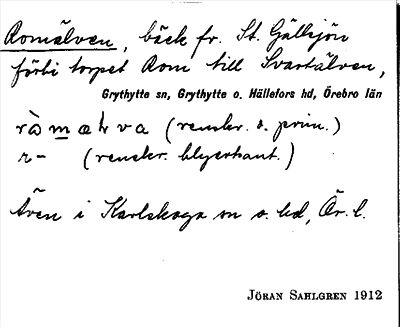 Romälven, bäck fr. St. Gällsjön
förbi torpet Rom till Svartälven,
Grythytte sn, Grythytte o. Hällefors hd, Örebro län
(renskr. o. prim.)
r- (renskr. blyertsant.)
Även i Karlskoga sn o. hd, Ör. l.
JÖRAN SAHLGREN 1912